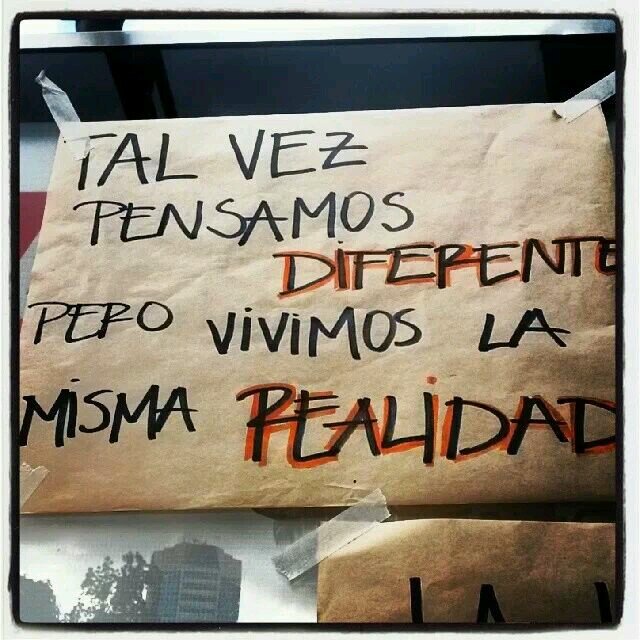 TAL VEZ
PENSAMOS
DIFERENTE
PERO VIVIMOS LA
MISMA REALIDAD
LA